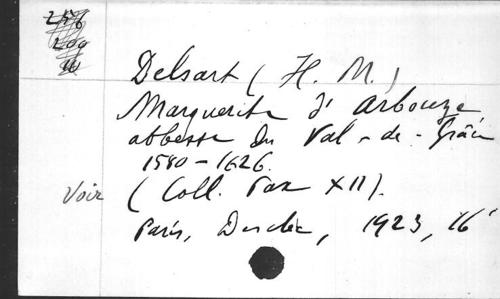 Delsart (H. M.)
Marguerite d'Arbouze
abbesse du Val-de-Grâce
1580-1626.
Voir (Coll. Pax XII).
Paris, Desclée, 1923, 16°